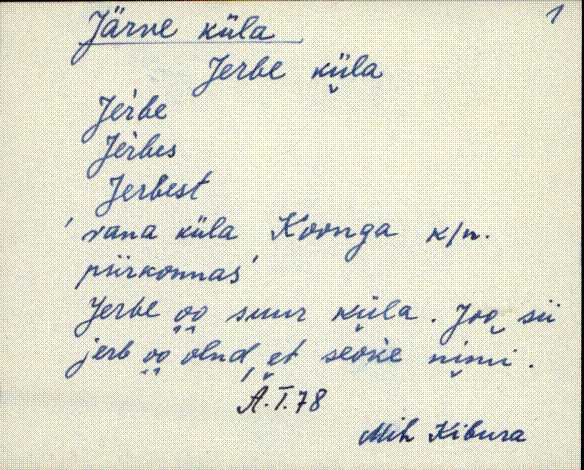 1
Järve küla
Jerbe küla
Je̍rbe
Je̍rbes
Jerbest
'vana küla Koonga k/n.
piirkonnas'
Jerbe oo suur küla. Joo sii
jerb oo olnd, et seoke nimi.
A.T.78
Mih Kibura